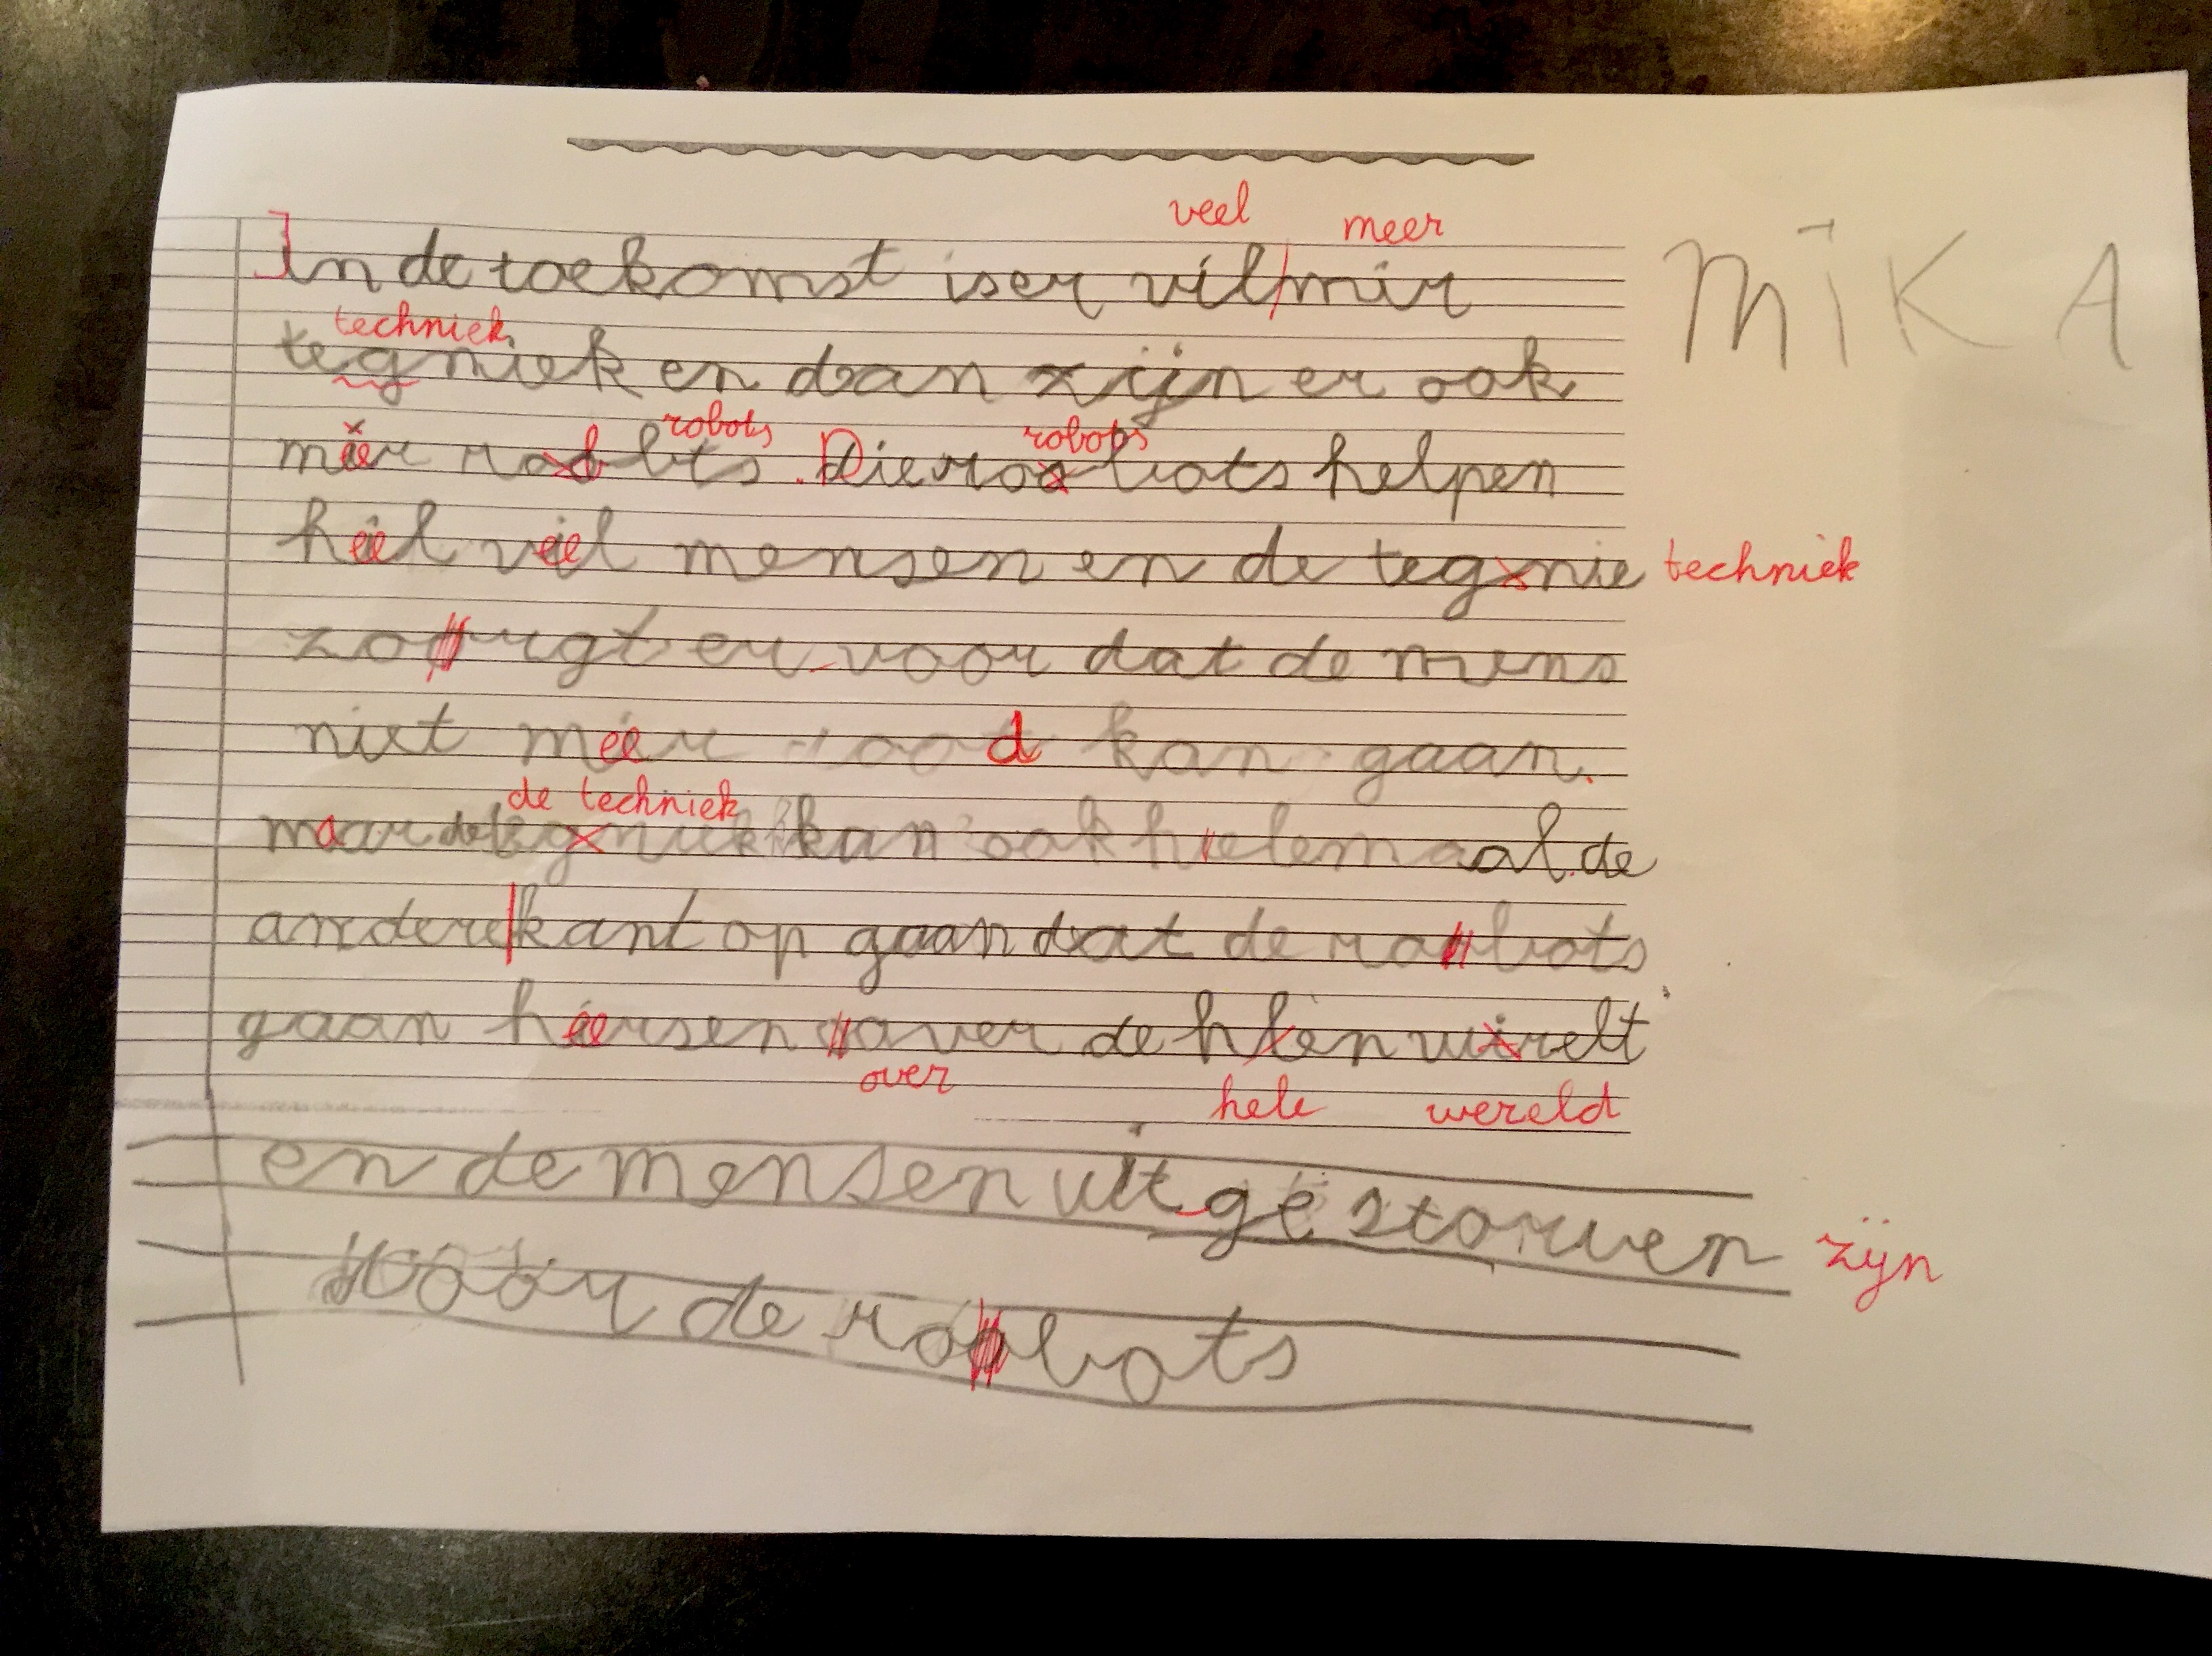 veel meer
In de toekomst is er vil mir
MIKA
techniek
tegniek en dan zijn er ook
robots robots
meer roobots. Die roobots helpen
heel veel mensen en de tegnie techniek
zorgt er voor dat de mens
niet meer dood kan gaan.
de techniek
maar de tegniek kan ook hielemaal de
andere kant op gaan dat de roobots
gaan heersen oover de hlen wirelt
over hele wereld
en de mensen uit gestorven zijn
voor de roobots